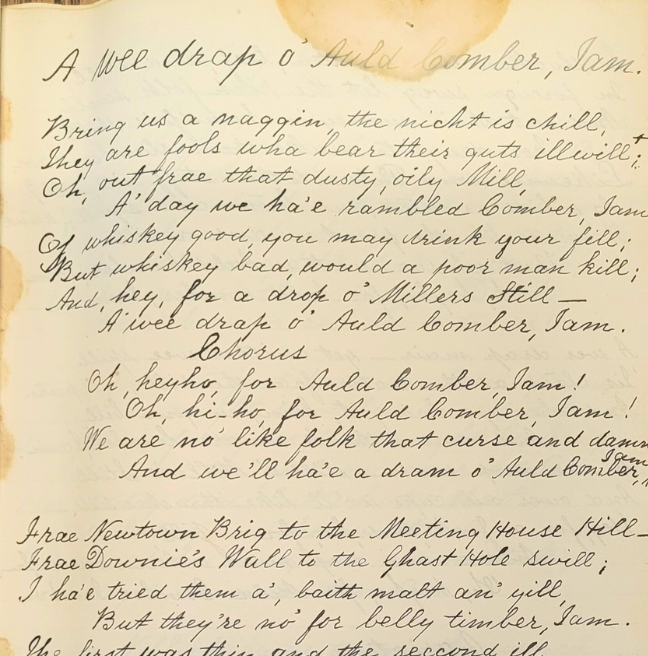 A wee drap o' Auld Comber, Iam.
Bring us a naggin, the nicht is chill,
They are fools wha bear their guts illwill;
Oh, out frae that dusty, oily Mill,
A' day we ha'e rambled Comber, Iam
Of whiskey good, you may drink your fill;
But whiskey bad, would a poor man kill;
And, hey, for a drop o' Millers Still —
A wee drap o' Auld Comber, Iam.
Chorus
Oh, heyho, for Auld Comber, Iam!
Oh, hi-ho, for Auld Comber, Iam!
We are no' like folk that curse and damn
And we'll ha'e a dram o' Auld Comber, Iam
Frae Newtown Brig to the Meeting House Hill—
Frae Downie's Wall to the Ghast Hole swill;
I ha'e tried them a', baith malt an' yill,
But they're no' for belly timber, Iam.
The first was thin and the seccond ill